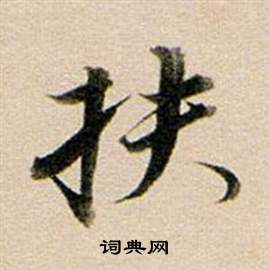 扶
词典网